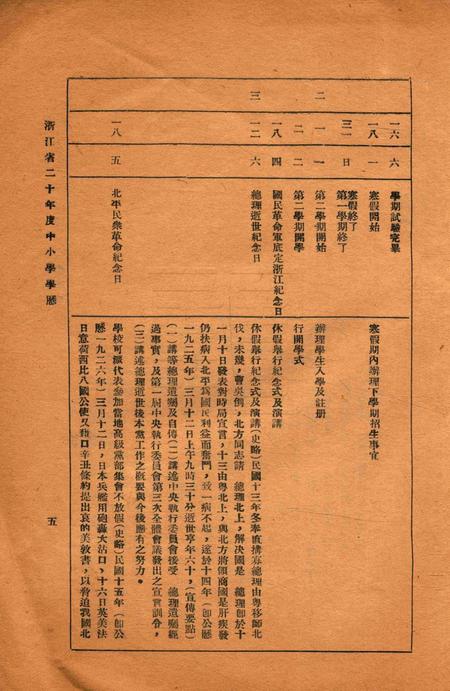 一六 六 學期試驗完畢
一八 一 寒假開始 寒假期內辦理下學期招生事宜
三一 日 寒假終了
第一學期終了
二 一 一 第二學期開始 辦理學生入學及註册
二 二 第二學期開學 行開學式
一八 四 國民革命軍底定浙江紀念日 休假舉行紀念式及演講
三 一二 六 總理逝世紀念日 休假舉行紀念式及演講(史略)民國十三年冬奉直搆釁總理由粵移師北
伐，未幾，曹吳倒，北方同志請 總理北上，解決國是 總理卽於十
一月十日發表對時局宣言，十三由粵北上，與北方將領商國是肝疾發
仍扶病入北平爲國民利益而奮鬥，致一病不起，遂於十四年(卽公曆
一九二五年)三月十二日上午九時三十分逝世享年六十，(宣傳要點)
(一)講 總理遺囑及自傳(二)講述中央執行委員會接受 總理遺囑經
過事實，及第一屆中央執行委員會第三次全體會議發出之宣言訓令，
(三)講述總理逝世後本黨工作之概要與今後應有之努力。
一八 五 北平民衆革命紀念日 學校可派代表參加當地高級黨部集會不放假(史略)民國十五年(卽公
曆一九二六年)三月十二日，日本兵艦用砲轟大沽口，十六日英美法
日意荷西比八國公使又藉口辛丑條約提出哀的美敦書，以脅迫我國北
浙江省二十年度中小學學曆 五